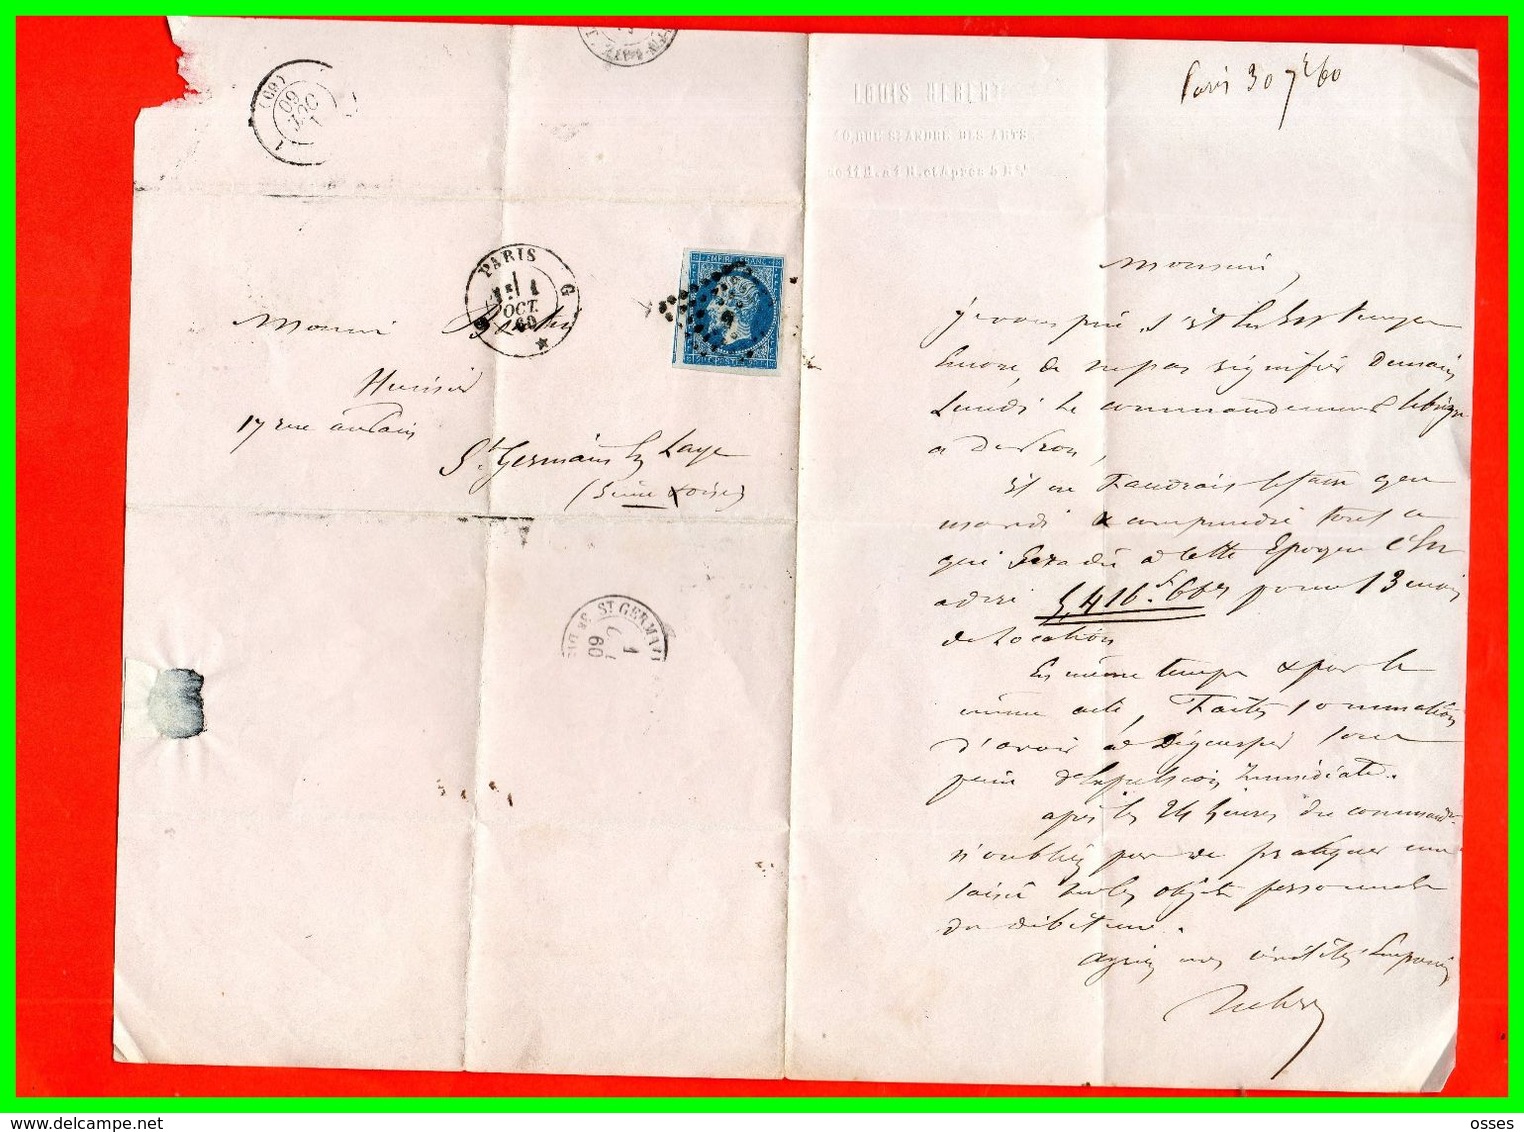 LOUIS HEBERT
RUE St ANDRE DES ARTS
Paris 30 7e 60
PARIS
1
OCT.
60
G
EMPIRE FRANC
Monsieur
Huissier
17 rue au Pain
St Germain en Laye
(Seine & Oise)
1
OCT
60
(60)
St GERMAIN
1
60
Monsieur,
je vous prie, s'il en est temps
encore, de ne pas signifier demain
Lundi le commandement
à
Il ne faudrait le faire que
mardi & comprendre tout ce
qui sera dû à cette Epoque c'est
à dire 5,416 f. 66 pour 13 mois
de Location
En même temps & par le
même acte, Faites sommation
d'avoir à Déguerpir sous
peine d'Expulsion Immédiate.
après les 24 heures du commandt
n'oubliez pas de pratiquer une
saisie sur les objets personnels
du débiteur.
agréez mes civilités Empressées
Hebert
osses